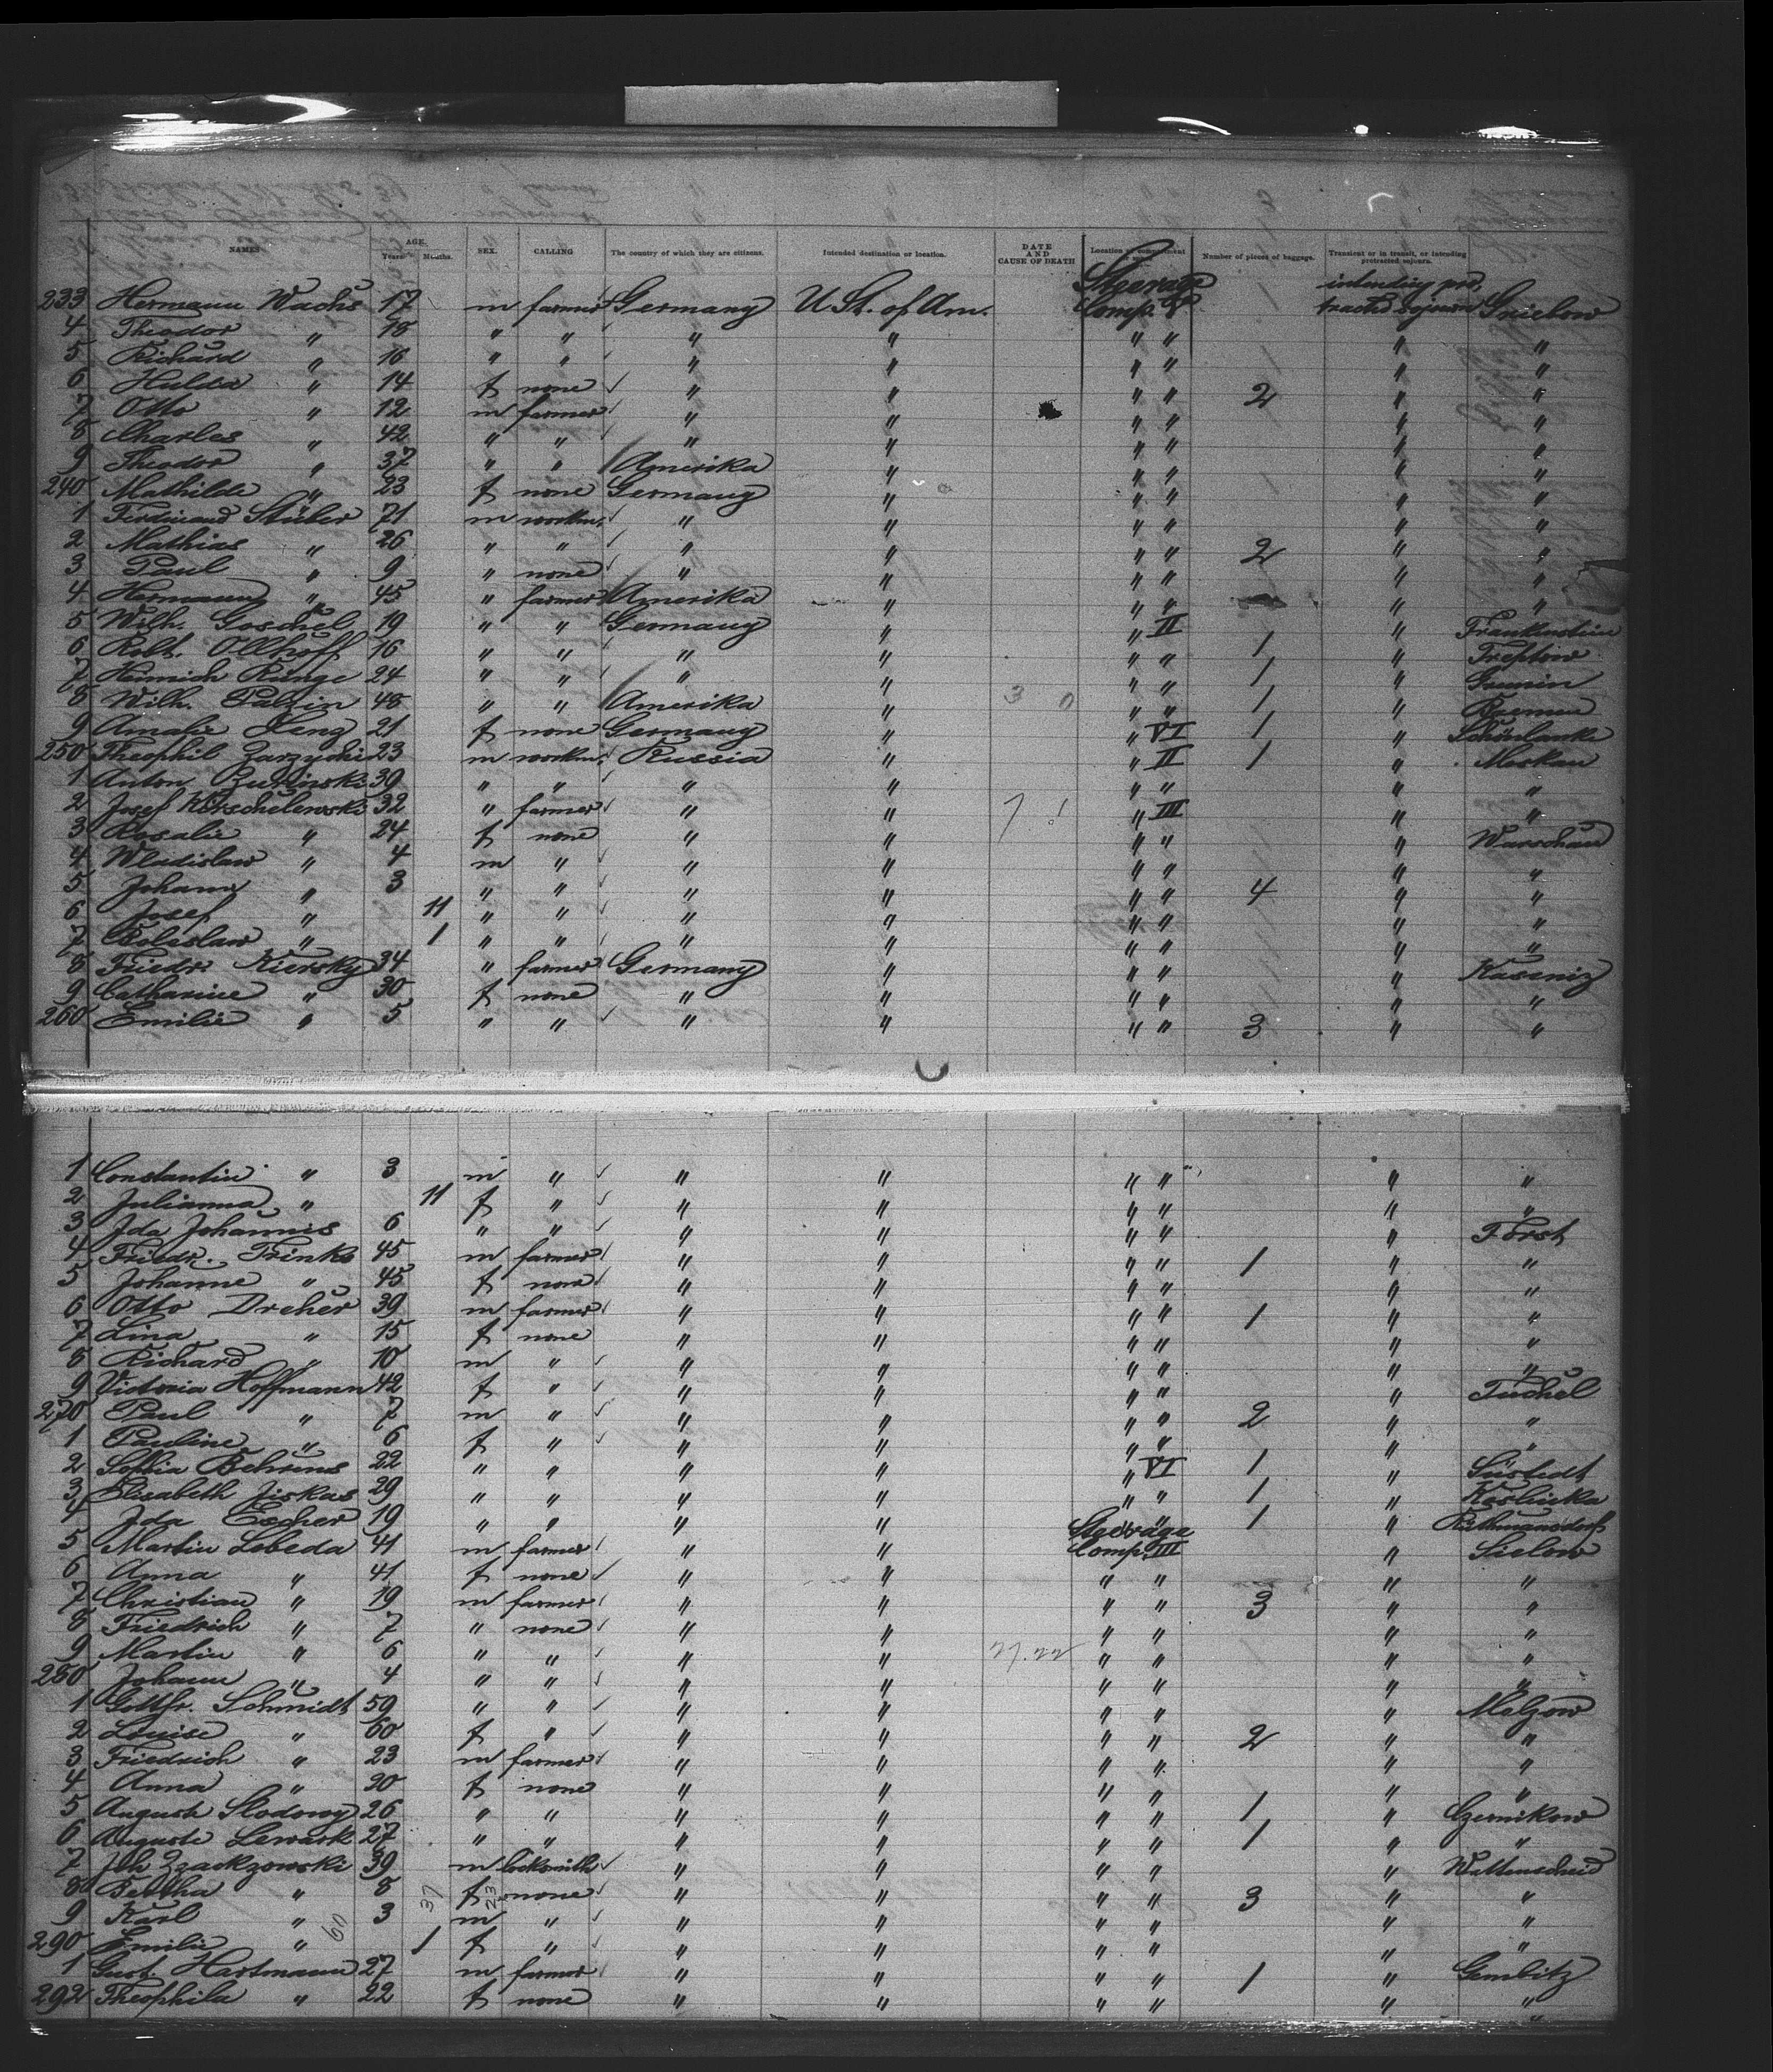 NAMES AGE. Years. Months. SEX. CALLING The country of which they are citizens. Intended destination or location. DATE AND CAUSE OF DEATH Location of compartment Number of pieces of baggage. Transient or in transit, or intending protracted sojourn.
233 Hermann Wachs 17 m farmer Germany U. St. of Am. Steerage Comp. intending protracted sojourn
4 Theodor " 18 " " " " " " " "
5 Richard " 16 " " " " " " " "
6 Hulda " 14 f none " " " " 2 " "
7 Otto " 12 m farmer " " " " " "
8 Charles " 42 " " " " " " " "
9 Theodor " 37 " " Amerika " " " " "
240 Mathilde " 23 f none Germany " " " " "
1 Ferdinand Stüber 71 m workm. " " " " " "
2 Mathias " 26 " " " " " " 2 " "
3 Paul " 9 " none " " " " " "
4 Hermann " 45 " farmer Amerika " " " " "
5 Wilh. Goschel 19 " " Germany " " II " Frankenstein
6 Robt. Ollhoff 16 " " " " " " 1 " Treptow
7 Heinrich Runge 24 " " " " " " 1 " Grenin
8 Wilh. Palzin 48 " " Amerika " 3 0 " " 1 " Bremen
9 Amalie Lenz 21 f none Germany " " VI 1 " Schönlanke
250 Theophil Zarzycki 23 m workm. Russia " " II 1 " Moskau
1 Anton 39 " " " " " " " "
2 Josef Korschelewski 32 " farmer " " " III " "
3 Rosalie " 24 f none " " " " " Warschau
4 Wladislaw " 4 m " " " " " " "
5 Johann " 3 " " " " " " 4 " "
6 Josef " 11 " " " " " " " "
7 Boleslaw " 1 " " " " " " " "
8 Friedr. Kiersky 34 " farmer Germany " " " " Kaseniz
9 Catharine " 30 f none " " " " " "
260 Emilie " 5 " " " " " " 3 " "
1 Constantin " 3 m " " " " " " "
2 Julianna " 11 f " " " " " " "
3 Ida Johannes 6 " " " " " " " Forst
4 Friedr. Trinks 45 m farmer " " " " 1 " "
5 Johanne " 45 f none " " " " " "
6 Otto Dreher 39 m farmer " " " " 1 " "
7 Lina " 15 f none " " " " " "
8 Richard " 10 m " " " " " " "
9 Victoria Hoffmann 42 f " " " " " " Tuchel
270 Paul " 7 m " " " " " 2 " "
1 Pauline " 6 f " " " " " " "
2 Sophia Behrens 22 " " " " " VI 1 " Süstedt
3 Elisabeth Jiskas 29 " " " " " " 1 " Koslinka
4 Ida Escher 19 " " " " " " 1 " Rothmannsdorf
5 Martin Lebeda 41 m farmer " " Steerage Comp. III " Sielow
6 Anna " 41 f none " " " " " "
7 Christian " 19 m farmer " " " " 3 " "
8 Friedrich " 7 " none " " " " " "
9 Martin " 6 " " " " " " " "
280 Johann " 4 " " " " " " " "
1 Gottfr. Schmidt 59 " " " " " " " Melzow
2 Louise " 60 f " " " " " 2 " "
3 Friedrich " 23 m farmer " " " " " "
4 Anna " 20 f none " " " " " "
5 Auguste Slodowy 26 " " " " " " 1 " Czernikow
6 Auguste Lewark 27 " " " " " " 1 " "
7 Joh. 39 m locksmith " " " " " Wattenscheid
8 Bertha " 8 f none " " " " 3 " "
9 Karl " 3 m " " " " " " "
290 Emilie " 1 f " " " " " " "
1 Gust. Hartmann 27 m farmer " " " " 1 " Gembitz
292 Theophila " 22 f none " " " " " "